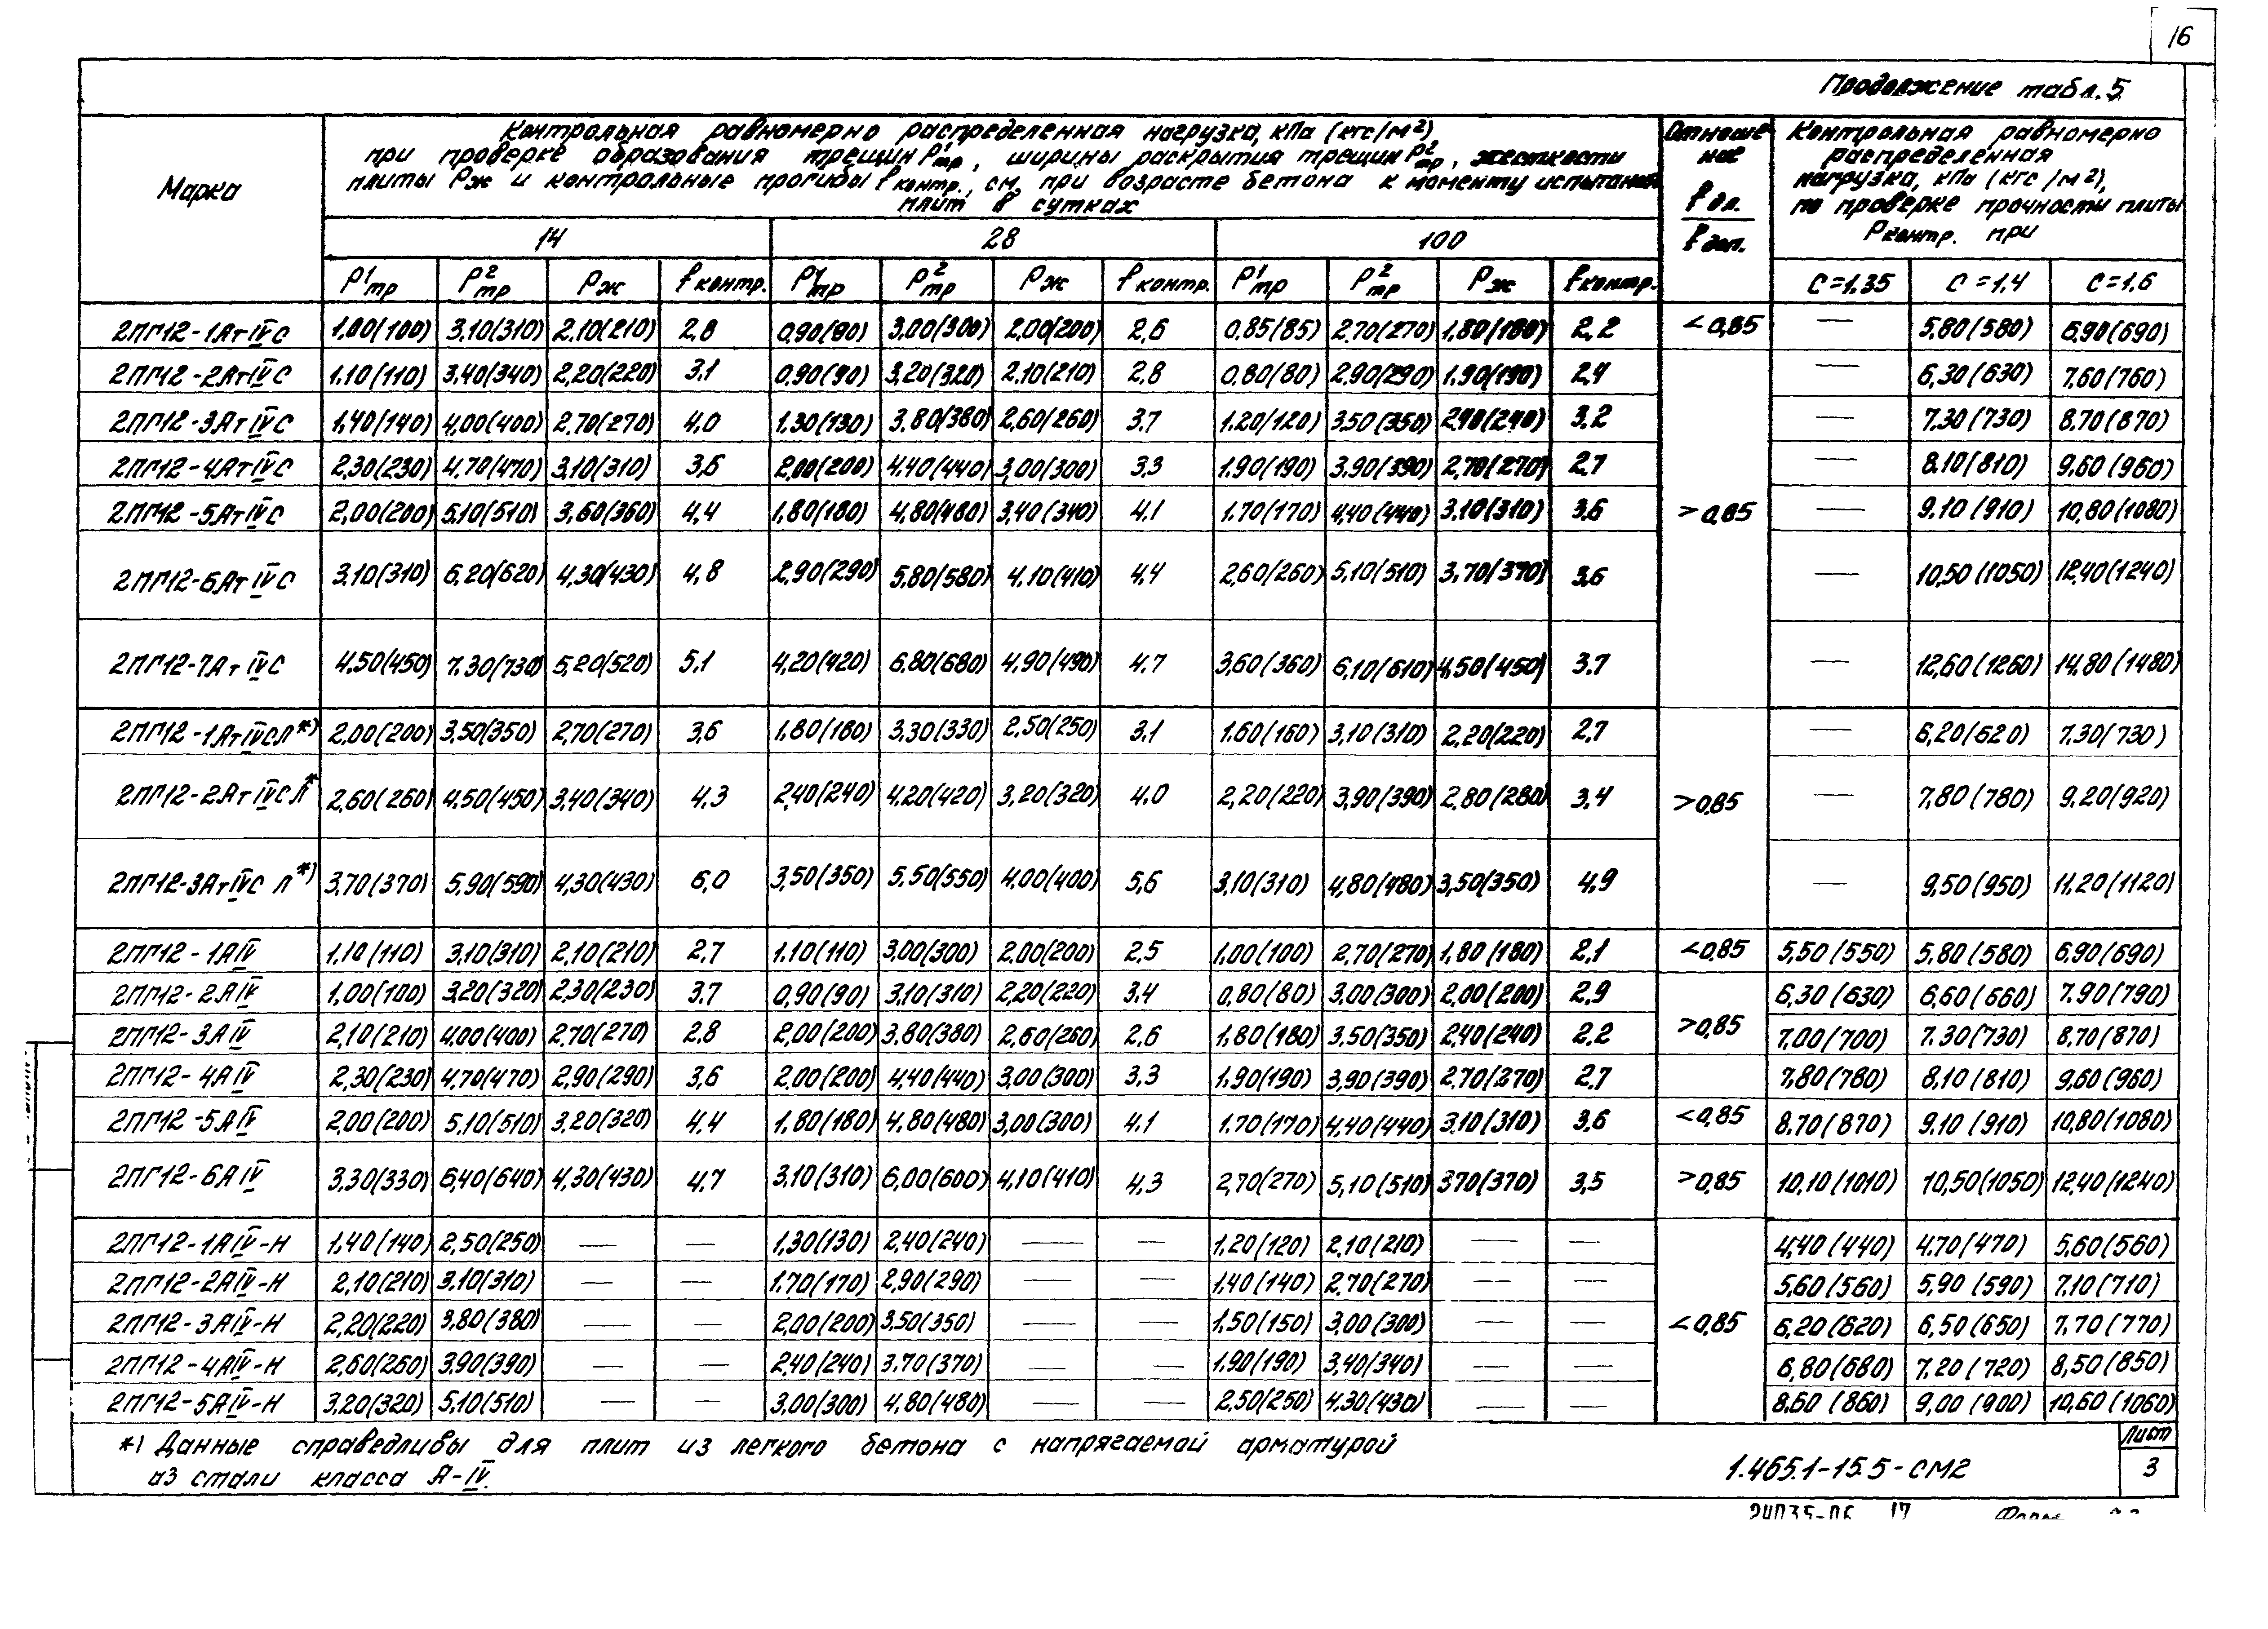 16
Продолжение табл. 5
Марка
Контрольная равномерно распределенная нагрузка, кПа (кгс/м²),
при проверке образования трещин P¹тр, ширины раскрытия трещин P²тр, жесткости
плиты Pж и контрольные прогибы fконтр., см, при возрасте бетона к моменту испытания
плит в сутках
14 28 100
Отноше
ние
f дл.
f доп.
Контрольная равномерно
распределенная
нагрузка, кПа (кгс/м²),
по проверке прочности плиты
Pконтр. при
P¹тр P²тр Pж fконтр. P¹тр P²тр Pж fконтр. P¹тр P²тр Pж fконтр. C=1,35 C=1,4 C=1,6
2ПГ12-1АтIVС 1,00(100) 3,10(310) 2,10(210) 2,8 0,90(90) 3,00(300) 2,00(200) 2,6 0,85(85) 2,70(270) 1,80(180) 2,2 <0,85 — 5,80(580) 6,90(690)
2ПГ12-2АтIVС 1,10(110) 3,40(340) 2,20(220) 3,1 0,90(90) 3,20(320) 2,10(210) 2,8 0,80(80) 2,90(290) 1,90(190) 2,4 — 6,30(630) 7,60(760)
2ПГ12-3АтIVС 1,40(140) 4,00(400) 2,70(270) 4,0 1,30(130) 3,80(380) 2,60(260) 3,7 1,20(120) 3,50(350) 2,40(240) 3,2 — 7,30(730) 8,70(870)
2ПГ12-4АтIVС 2,30(230) 4,70(470) 3,10(310) 3,6 2,00(200) 4,40(440) 3,00(300) 3,3 1,90(190) 3,90(390) 2,70(270) 2,7 — 8,10(810) 9,60(960)
2ПГ12-5АтIVС 2,00(200) 5,10(510) 3,60(360) 4,4 1,80(180) 4,80(480) 3,40(340) 4,1 1,70(170) 4,40(440) 3,10(310) 3,6 >0,85 — 9,10(910) 10,80(1080)
2ПГ12-6АтIVС 3,10(310) 6,20(620) 4,30(430) 4,8 2,90(290) 5,80(580) 4,10(410) 4,4 2,60(260) 5,10(510) 3,70(370) 3,6 — 10,50(1050) 12,40(1240)
2ПГ12-7АтIVС 4,50(450) 7,30(730) 5,20(520) 5,1 4,20(420) 6,80(680) 4,90(490) 4,7 3,60(360) 6,10(610) 4,50(450) 3,7 — 12,60(1260) 14,80(1480)
2ПГ12-1АтIVСЛ*) 2,00(200) 3,50(350) 2,70(270) 3,6 1,80(180) 3,30(330) 2,50(250) 3,1 1,60(160) 3,10(310) 2,20(220) 2,7 — 6,20(620) 7,30(730)
2ПГ12-2АтIVСЛ* 2,60(260) 4,50(450) 3,40(340) 4,3 2,40(240) 4,20(420) 3,20(320) 4,0 2,20(220) 3,90(390) 2,80(280) 3,4 >0,85 — 7,80(780) 9,20(920)
2ПГ12-3АтIVСЛ*) 3,70(370) 5,90(590) 4,30(430) 6,0 3,50(350) 5,50(550) 4,00(400) 5,6 3,10(310) 4,80(480) 3,50(350) 4,9 — 9,50(950) 11,20(1120)
2ПГ12-1АIV 1,10(110) 3,10(310) 2,10(210) 2,7 1,10(110) 3,00(300) 2,00(200) 2,5 1,00(100) 2,70(270) 1,80(180) 2,1 <0,85 5,50(550) 5,80(580) 6,90(690)
2ПГ12-2АIV 1,00(100) 3,20(320) 2,30(230) 3,7 0,90(90) 3,10(310) 2,20(220) 3,4 0,80(80) 3,00(300) 2,00(200) 2,9 6,30(630) 6,60(660) 7,90(790)
2ПГ12-3АIV 2,10(210) 4,00(400) 2,70(270) 2,8 2,00(200) 3,80(380) 2,60(260) 2,6 1,80(180) 3,50(350) 2,40(240) 2,2 >0,85 7,00(700) 7,30(730) 8,70(870)
2ПГ12-4АIV 2,30(230) 4,70(470) 2,90(290) 3,6 2,00(200) 4,40(440) 3,00(300) 3,3 1,90(190) 3,90(390) 2,70(270) 2,7 7,80(780) 8,10(810) 9,60(960)
2ПГ12-5АIV 2,00(200) 5,10(510) 3,20(320) 4,4 1,80(180) 4,80(480) 3,00(300) 4,1 1,70(170) 4,40(440) 3,10(310) 3,6 <0,85 8,70(870) 9,10(910) 10,80(1080)
2ПГ12-6АIV 3,30(330) 6,40(640) 4,30(430) 4,7 3,10(310) 6,00(600) 4,10(410) 4,3 2,70(270) 5,10(510) 3,70(370) 3,5 >0,85 10,10(1010) 10,50(1050) 12,40(1240)
2ПГ12-1АIV-Н 1,40(140) 2,50(250) — — 1,30(130) 2,40(240) — — 1,20(120) 2,10(210) — — 4,40(440) 4,70(470) 5,60(560)
2ПГ12-2АIV-Н 2,10(210) 3,10(310) — — 1,70(170) 2,90(290) — — 1,40(140) 2,70(270) — — 5,60(560) 5,90(590) 7,10(710)
2ПГ12-3АIV-Н 2,20(220) 3,80(380) — — 2,00(200) 3,50(350) — — 1,50(150) 3,00(300) — — <0,85 6,20(620) 6,50(650) 7,70(770)
2ПГ12-4АIV-Н 2,60(260) 3,90(390) — — 2,40(240) 3,70(370) — — 1,90(190) 3,40(340) — — 6,80(680) 7,20(720) 8,50(850)
2ПГ12-5АIV-Н 3,20(320) 5,10(510) — — 3,00(300) 4,80(480) — — 2,50(250) 4,30(430) — — 8,60(860) 9,00(900) 10,60(1060)
*) Данные справедливы для плит из легкого бетона с напрягаемой арматурой
из стали класса А-IV.
1.465.1-15.5-СМ2
Лист
3
24035-06 17